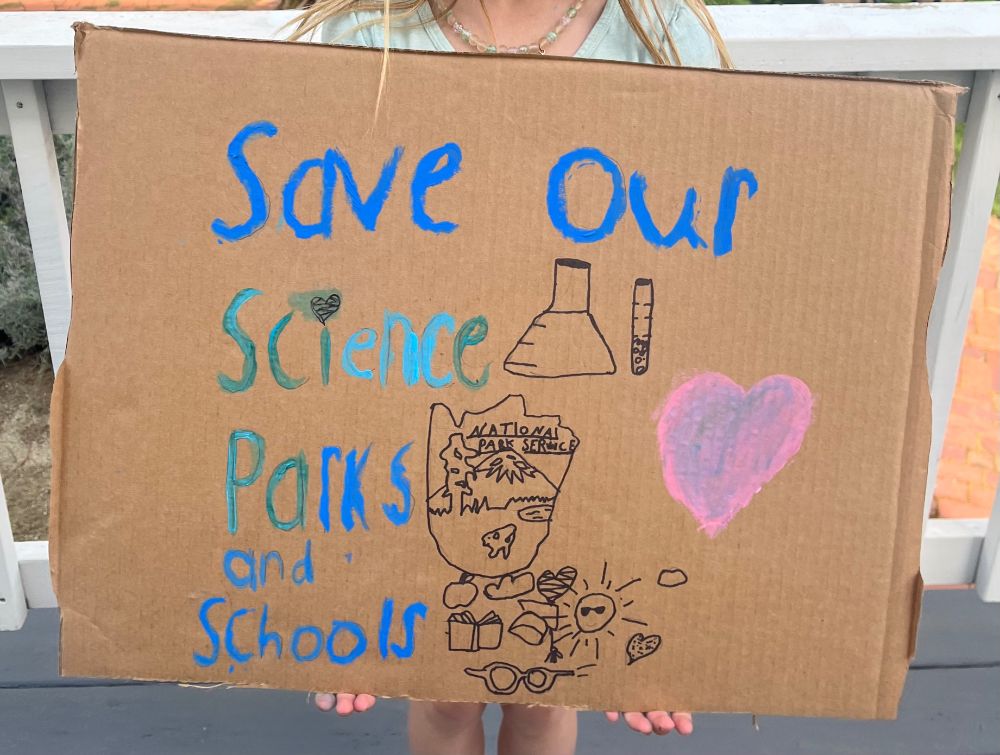 Save Our
Science
NATIONAL
PARK SERVICE
Parks
and
Schools